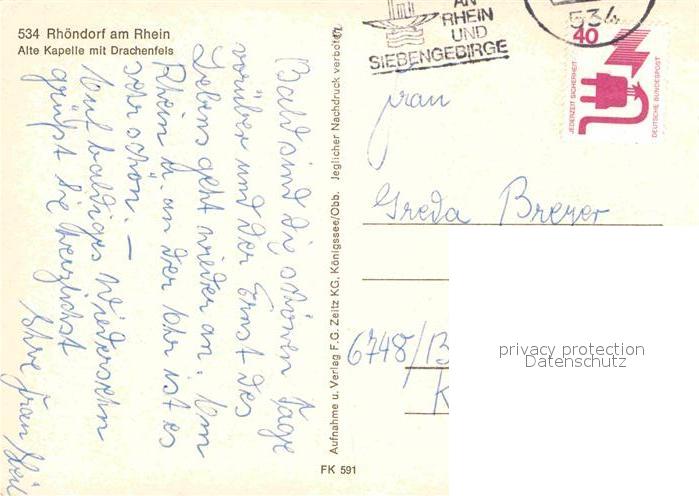 534 Rhöndorf am Rhein
Alte Kapelle mit Drachenfels
Bald sind die schönen Tage
vorüber und der Ernst des
Lebens geht wieder an. Am
Rhein u. an der Ahr ist es
sehr schön. —
Auf baldiges Wiedersehn
grüßt Sie herzlichst
Ihre Frau
Aufnahme u. Verlag F.G. Zeitz KG, Königssee/Obb. Jeglicher Nachdruck verboten
FK 591
AN
RHEIN
UND
SIEBENGEBIRGE
534
40
JEDERZEIT SICHERHEIT
DEUTSCHE BUNDESPOST
Frau
Greda Breyer
6748/B
K
privacy protection
Datenschutz